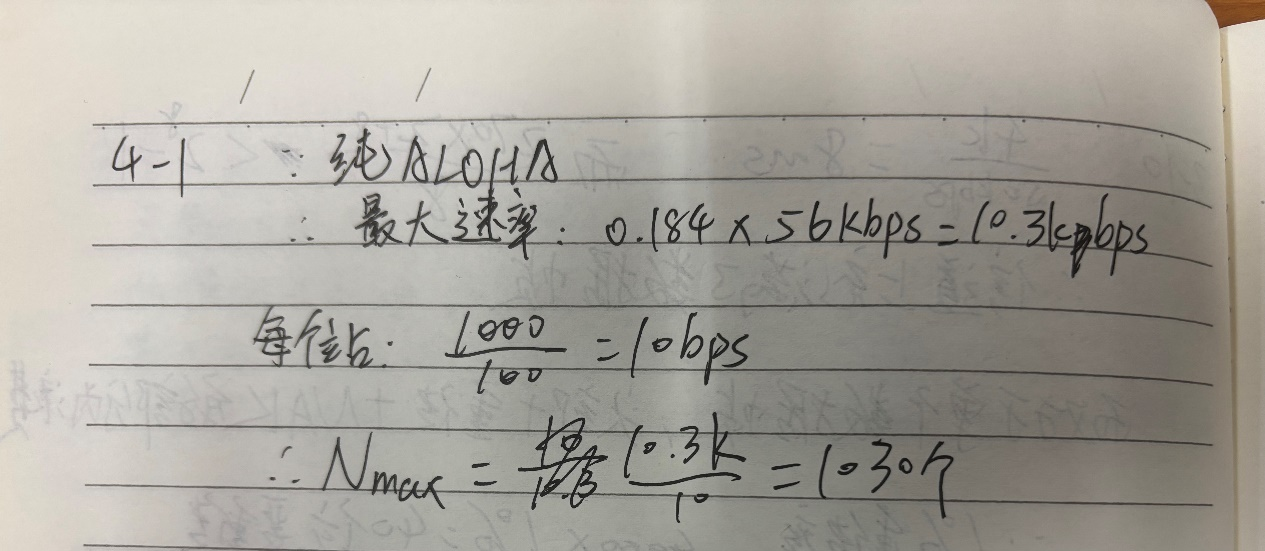 4-1 ∵ 纯ALOHA
∴ 最大速率: 0.184 × 56kbps = 10.3kbps
每个站: 1000/100 = 10bps
∴ Nmax = 10.3k/10 = 1030个